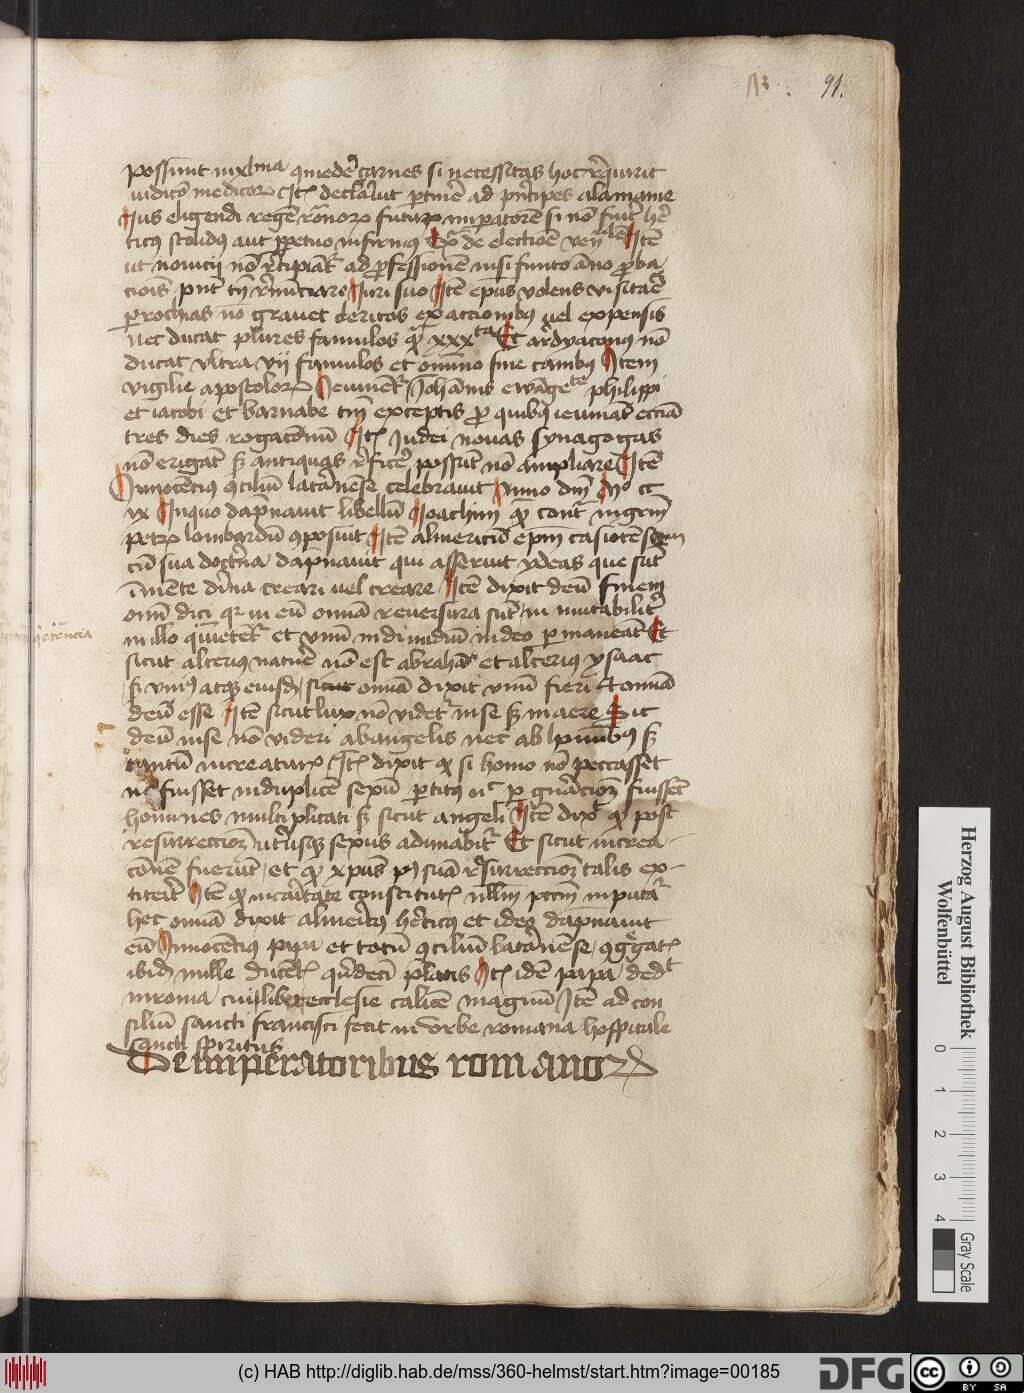 113 91.
possunt in xlma comedere carnes si necessitas hoc requirit
iudicio medicorum Item declarauit pertinere ad principes alamanie
Ius eligendi regem romanorum futurum imperatorem si non fuerit here
ticus stolidus aut perpetuo infirmus Extra de electione Item
ut nouicij non recipiantur ad professionem nisi finito anno proba
cionis possunt tamen renunciare Iuri suo Item episcopus volens visitare
parochias non grauet clericos exaccionibus uel expensis
nec ducat plures famulos quam xxxta Et archidyaconus non
ducat vltra vij famulos et omnino sine canibus Item
vigilie apostolorum Ieiunentur Iohannis ewangeliste philippi
et iacobi et barnabe tamen exceptis pro quibus ieiuniat ecclesia
tres dies rogacionum Item Iudei nouas synagogas
non erigant sed antiquas reficere possunt non ampliare Item
Innocencius concilium lateranense celebrauit Anno domini Mo cc
ix In quo dampnauit libellum Ioachim quem contra magistrum
petrum lombardum composuit Item almericum episcopum
cum sua doctrina dampnauit qui asseruit ydeas que sunt
in mente diuina creari uel creare Item dixit deum finem
omnium dici quia in eum omnia reuersura sunt ut in mutabiliter
in illo quietentur et vnum indiuiduum in deo permaneant Et
sicut alterius nature non est abraham et alterius ysaac
sed vnius atque eiusdem sicut omnia dixit vnum fieri Et omnia
deum esse Item sicut lux non videtur in se sed in aere Sic
deum in se non videri ab angelis nec ab hominibus sed
tantum in creaturis Item dixit quod si homo non peccasset
non fuisset in duplicem sexum partitus nec per generacionem fuissent
homines multiplicati sed sicut angeli Item dixit quod post
resurreccionem utriusque sexus adunabitur Et sicut in crea
cione fuerunt et quod xpus post suam resurreccionem talis ex-
titerit Item quod in caritate constitutis nullum peccatum inputatur
hec omnia dixit almericus hereticus et ideo dampnauit
eum Innocencius papa et totum concilium lateranense congregatum
ibidem mille ducentis prelatis Item idem papa dedit
in roma cuilibet ecclesie calicem magnum Item ad con
silium sancti francisci fecit in vrbe romana hospitale
sancti spiritus
De imperatoribus romanorum
Herzog August Bibliothek
Wolfenbüttel
0 1 2 3 4
Gray Scale
(c) HAB http://diglib.hab.de/mss/360-helmst/start.htm?image=00185
DFG
cc BY SA